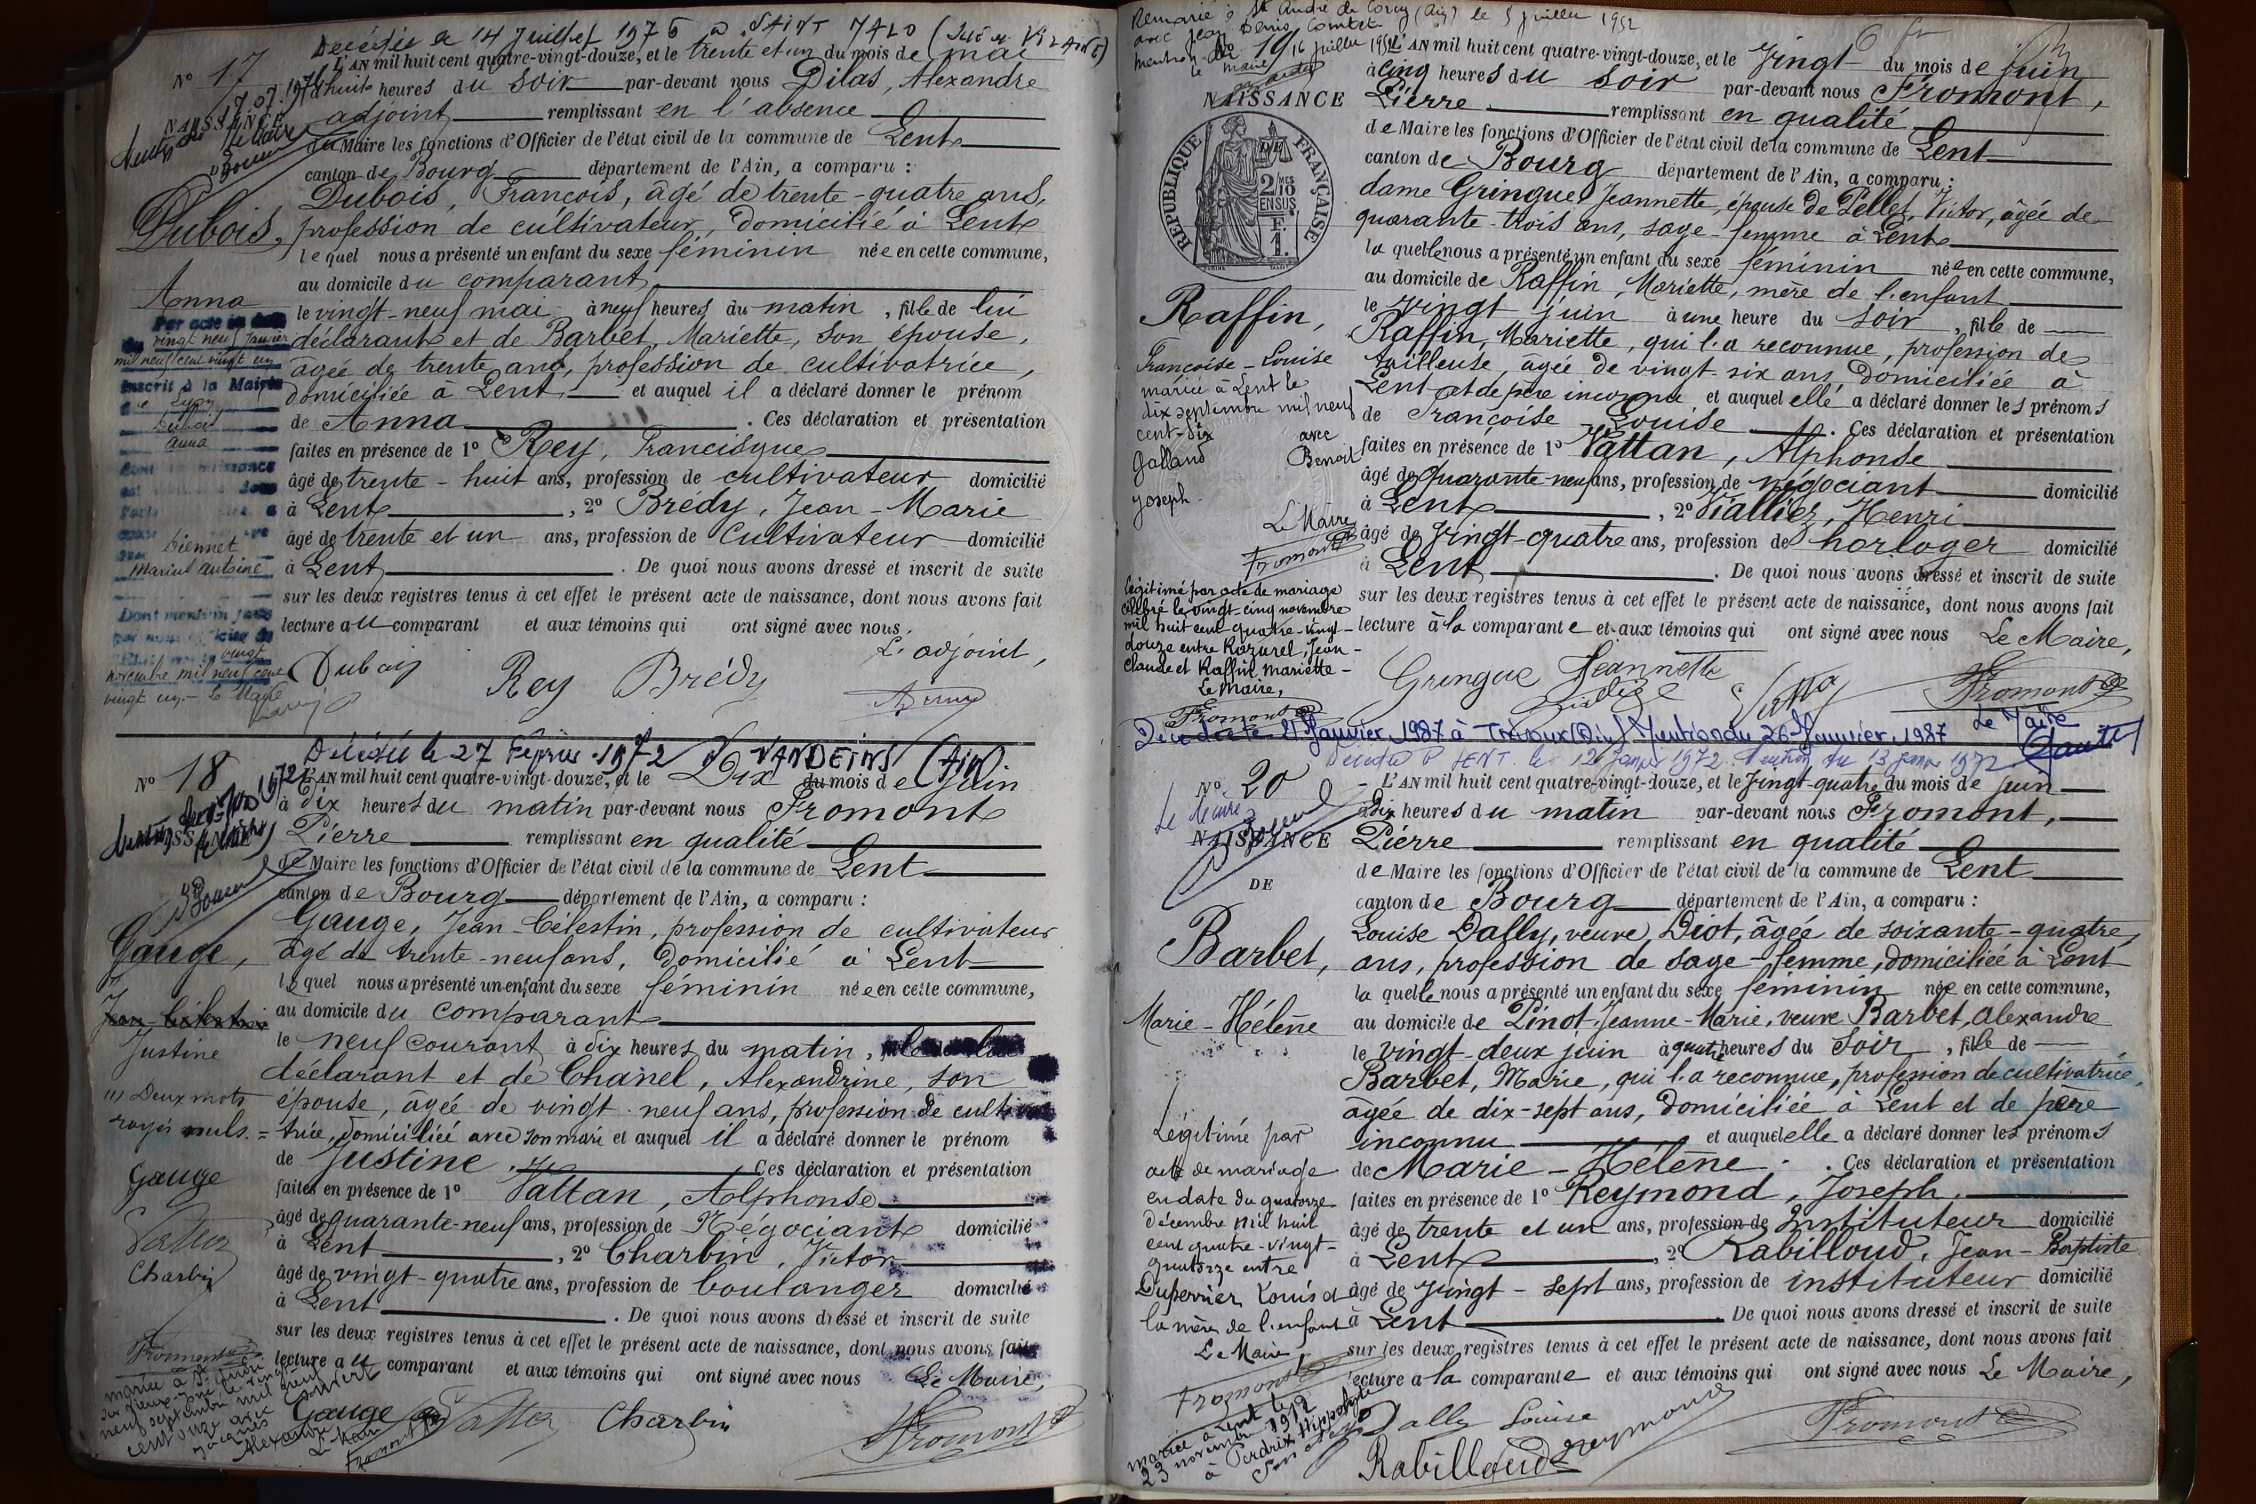 Décédée le 14 Juillet 1976 à SAINT MALO
N° 17
L'AN mil huit cent quatre-vingt-douze, et le trente et un du mois de mai
à huit heures du soir par-devant nous Dilas, Alexandre
NAISSANCE
adjoint remplissant en l'absence
du Maire les fonctions d'Officier de l'état civil de la commune de Lent
canton de Bourg département de l'Ain, a comparu :
Dubois, François, âgé de trente-quatre ans,
Dubois, profession de cultivateur, domicilié à Lent
lequel nous a présenté un enfant du sexe féminin née en cette commune,
au domicile du comparant
Anna
le vingt-neuf mai à neuf heures du matin, fille de lui
déclarant et de Barbet, Mariette, son épouse,
âgée de trente ans, profession de cultivatrice,
domiciliée à Lent, et auquel il a déclaré donner le prénom
de Anna. Ces déclaration et présentation
faites en présence de 1° Rey, Francisque
âgé de trente-huit ans, profession de cultivateur domicilié
à Lent, 2° Brédy, Jean-Marie
âgé de trente et un ans, profession de Cultivateur domicilié
à Lent. De quoi nous avons dressé et inscrit de suite
sur les deux registres tenus à cet effet le présent acte de naissance, dont nous avons fait
lecture au comparant et aux témoins qui ont signé avec nous.
L'adjoint,
Dubois Rey Brédy
Par acte en date
du vingt neuf Janvier
mil neuf cent vingt un
inscrit à la Mairie
de Lyon
Dubois
Anna
Diennet
Marius Antoine
vingt
novembre mil neuf cent
vingt un. Le Maire
Décédée le 27 Février 1972 à VANDEINS (Ain)
N° 18
L'AN mil huit cent quatre-vingt-douze, et le Dix du mois de Juin
à dix heures du matin par-devant nous Fromont
Pierre remplissant en qualité
de Maire les fonctions d'Officier de l'état civil de la commune de Lent
canton de Bourg département de l'Ain, a comparu :
Gauge, Jean-Célestin, profession de cultivateur
Gauge,
âgé de trente-neuf ans, domicilié à Lent
lequel nous a présenté un enfant du sexe féminin née en cette commune,
Jean-Célestin
au domicile du comparant
Justine
le neuf courant à dix heures du matin,
déclarant et de Chanel, Alexandrine, son
(1) Deux mots
rayés nuls.
épouse, âgée de vingt-neuf ans, profession de cultiva
trice, domiciliée avec son mari et auquel il a déclaré donner le prénom
de Justine. Ces déclaration et présentation
Gauge
faites en présence de 1° Vattan, Alphonse
âgé de quarante-neuf ans, profession de Négociant domicilié
Vattan
à Lent, 2° Charbin, Victor
Charbin
âgé de vingt-quatre ans, profession de boulanger domicilié
à Lent. De quoi nous avons dressé et inscrit de suite
sur les deux registres tenus à cet effet le présent acte de naissance, dont nous avons fait
lecture au comparant et aux témoins qui ont signé avec nous Le Maire,
Fromont
Gauge Vattan Charbin Fromont
Remariée à St André de Corcy (Ain) le 5 juillet 1952
avec Jean Denis Comtet
N° 19
L'AN mil huit cent quatre-vingt-douze, et le Vingt du mois de Juin
à cinq heures du soir par-devant nous Fromont,
NAISSANCE
Pierre remplissant en qualité
de Maire les fonctions d'Officier de l'état civil de la commune de Lent
canton de Bourg département de l'Ain, a comparu :
RÉPUBLIQUE FRANÇAISE
2 MES 10 EN SUS
1 F.
dame Gringue, Jeannette, épouse de Pellet, Victor, âgée de
quarante-trois ans, sage-femme à Lent
laquelle nous a présenté un enfant du sexe féminin née en cette commune,
au domicile de Raffin, Mariette, mère de l'enfant
Raffin,
le vingt juin à une heure du soir, fille de
Raffin, Mariette, qui l'a reconnue, profession de
tailleuse, âgée de vingt-six ans, domiciliée à
Lent et de père inconnu et auquel elle a déclaré donner les prénoms
de Françoise Louise. Ces déclaration et présentation
faites en présence de 1° Vattan, Alphonse
âgé de quarante-neuf ans, profession de négociant domicilié
à Lent, 2° Viallier, Henri
âgé de vingt-quatre ans, profession de horloger domicilié
à Lent. De quoi nous avons dressé et inscrit de suite
sur les deux registres tenus à cet effet le présent acte de naissance, dont nous avons fait
lecture à la comparante et aux témoins qui ont signé avec nous Le Maire,
Gringue Jeannette Fromont
Françoise-Louise
mariée à Lent le
dix septembre mil neuf
cent-dix avec
Galland Benoit
Joseph.
Le Maire
Fromont
Légitimé par acte de mariage
célébré le vingt-cinq novembre
mil huit cent quatre-vingt-
douze entre Rozurel, Jean-
Claude et Raffin Mariette
Le Maire,
Fromont
Décédée le 21 Janvier 1987 à Trévoux (Ain) Mention du 26 Janvier 1987 Le Maire
Décédée à LENT le 12 Janvier 1972. Mention du 13 Janvier 1972
N° 20
L'AN mil huit cent quatre-vingt-douze, et le Vingt-quatre du mois de Juin
Le Maire
à dix heures du matin par-devant nous Fromont,
NAISSANCE
Pierre remplissant en qualité
de Maire les fonctions d'Officier de l'état civil de la commune de Lent
DE
canton de Bourg département de l'Ain, a comparu :
Louise Dally, veuve Diot, âgée de soixante-quatre
Barbet,
ans, profession de sage-femme, domiciliée à Lent
laquelle nous a présenté un enfant du sexe féminin née en cette commune,
Marie-Hélène
au domicile de Pinot Jeanne-Marie, veuve Barbet, Alexandre
le vingt-deux juin à quatre heures du Soir, fille de
Barbet, Marie, qui l'a reconnue, profession de cultivatrice,
âgée de dix-sept ans, domiciliée à Lent et de père
inconnu et auquel elle a déclaré donner les prénoms
de Marie-Hélène. Ces déclaration et présentation
faites en présence de 1° Reymond, Joseph.
âgé de trente et un ans, profession de Instituteur domicilié
à Lent, 2° Rabilloud, Jean-Baptiste
âgé de Vingt-sept ans, profession de instituteur domicilié
à Lent. De quoi nous avons dressé et inscrit de suite
sur les deux registres tenus à cet effet le présent acte de naissance, dont nous avons fait
lecture à la comparante et aux témoins qui ont signé avec nous Le Maire,
Dally Louise Fromont
Rabilloud Reymond
Légitimé par
acte de mariage
en date du quatorze
décembre mil huit
cent quatre-vingt-
quatorze entre
Dupervier Louis et
la mère de l'enfant
Le Maire
Fromont
mariée à Lent le
23 novembre 1912
à Perdrix Hippolyte